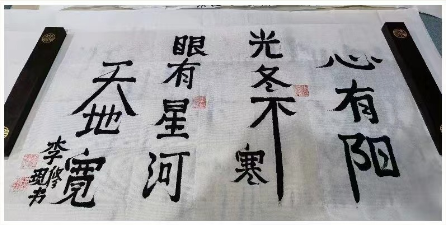 心有阳
光冬不寒
眼有星河
天地寬
李修